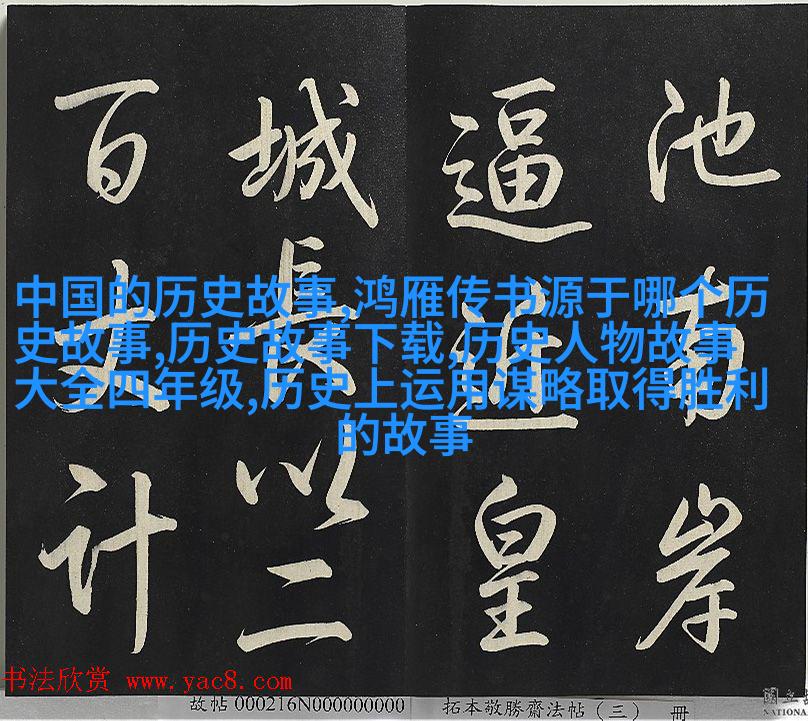 池南岸
逼近皇
城長以二
百丈計
中国的历史故事,鸿雁传书源于哪个历
史故事,历史故事下载,历史人物故事
大全四年级,历史上运用谋略取得胜利
的故事
书法欣赏 www.yac8.com
故帖 000216N000000000 拓本敬勝齋法帖（三） 冊
國立
NATIONA